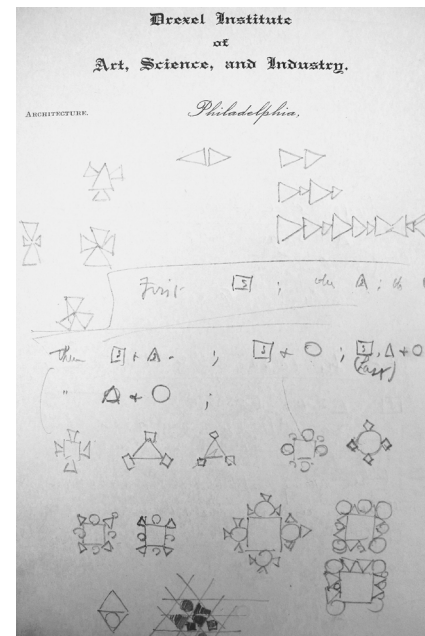 Drexel Institute
of
Art, Science, and Industry.
ARCHITECTURE.
Philadelphia,
First S ; ;
Then S + A - ; S + O ; S, Δ + O
(Last)
" Δ + O ;